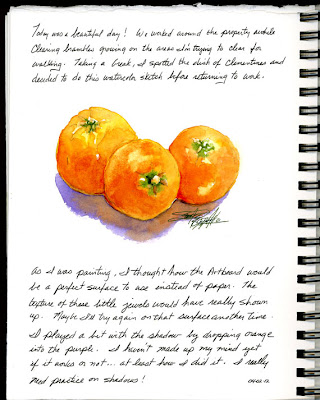 Today was a beautiful day! We worked around the property while
clearing brambles growing on the areas I'm trying to clear for
walking. Taking a break, I spotted the dish of Clementines and
decided to do this watercolor sketch before returning to work.
As I was painting, I thought how the Artboard would
be a perfect surface to use instead of paper. The
texture of these little jewels would have really shown
up. Maybe I'll try again on that surface another time.
I played a bit with the shadow by dropping orange
into the purple. I haven't made up my mind yet
if it works or not... at least how I did it. I really
need practice on shadows!